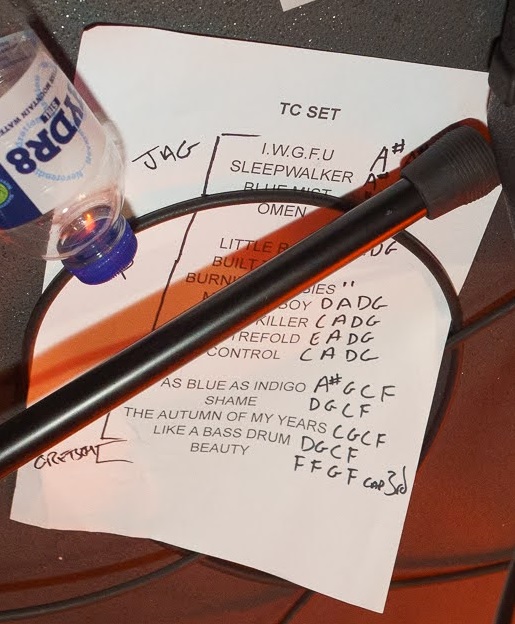 HYDR8
STILL
MOUNTAIN WATER
TC SET
JAG
I.W.G.F.U A#
SLEEPWALKER
BLUE MIST
OMEN
LITTLE
BUILT
BIES "
BOY DADG
KILLER CADG
TREFOLD EADG
CONTROL CADG
AS BLUE AS INDIGO A#GCF
SHAME DGCF
THE AUTUMN OF MY YEARS CGCF
LIKE A BASS DRUM DGCF
BEAUTY FFGF CAP 3rd
GRETSCH